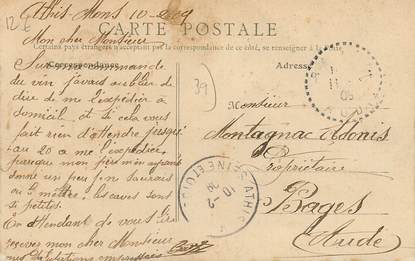 12 €
Athis-Mons 10-2-09
CARTE POSTALE
Mon cher Monsieur
Certains pays étrangers n'acceptant pas la correspondance de ce côté, se renseigner à la Poste.
Sur ma commande
du vin j'avais oublié de
dire de me l'expédier à
domicile, et si cela vous
fait rien d'attendre jusqu'
au 20 a me l'expédier
parceque mon père m'en ayant
donné un peu j'en saurais
ou le mettre, les caves sont
si petites.
En attendant de vous lire
recevez mon cher Monsieur
mes salutations empressées
39
Adresse
Monsieur
Montagnac Adonis
Propriétaire
Bages
Aude
ATHIS
SEINE-ET-OISE
10 -2
09